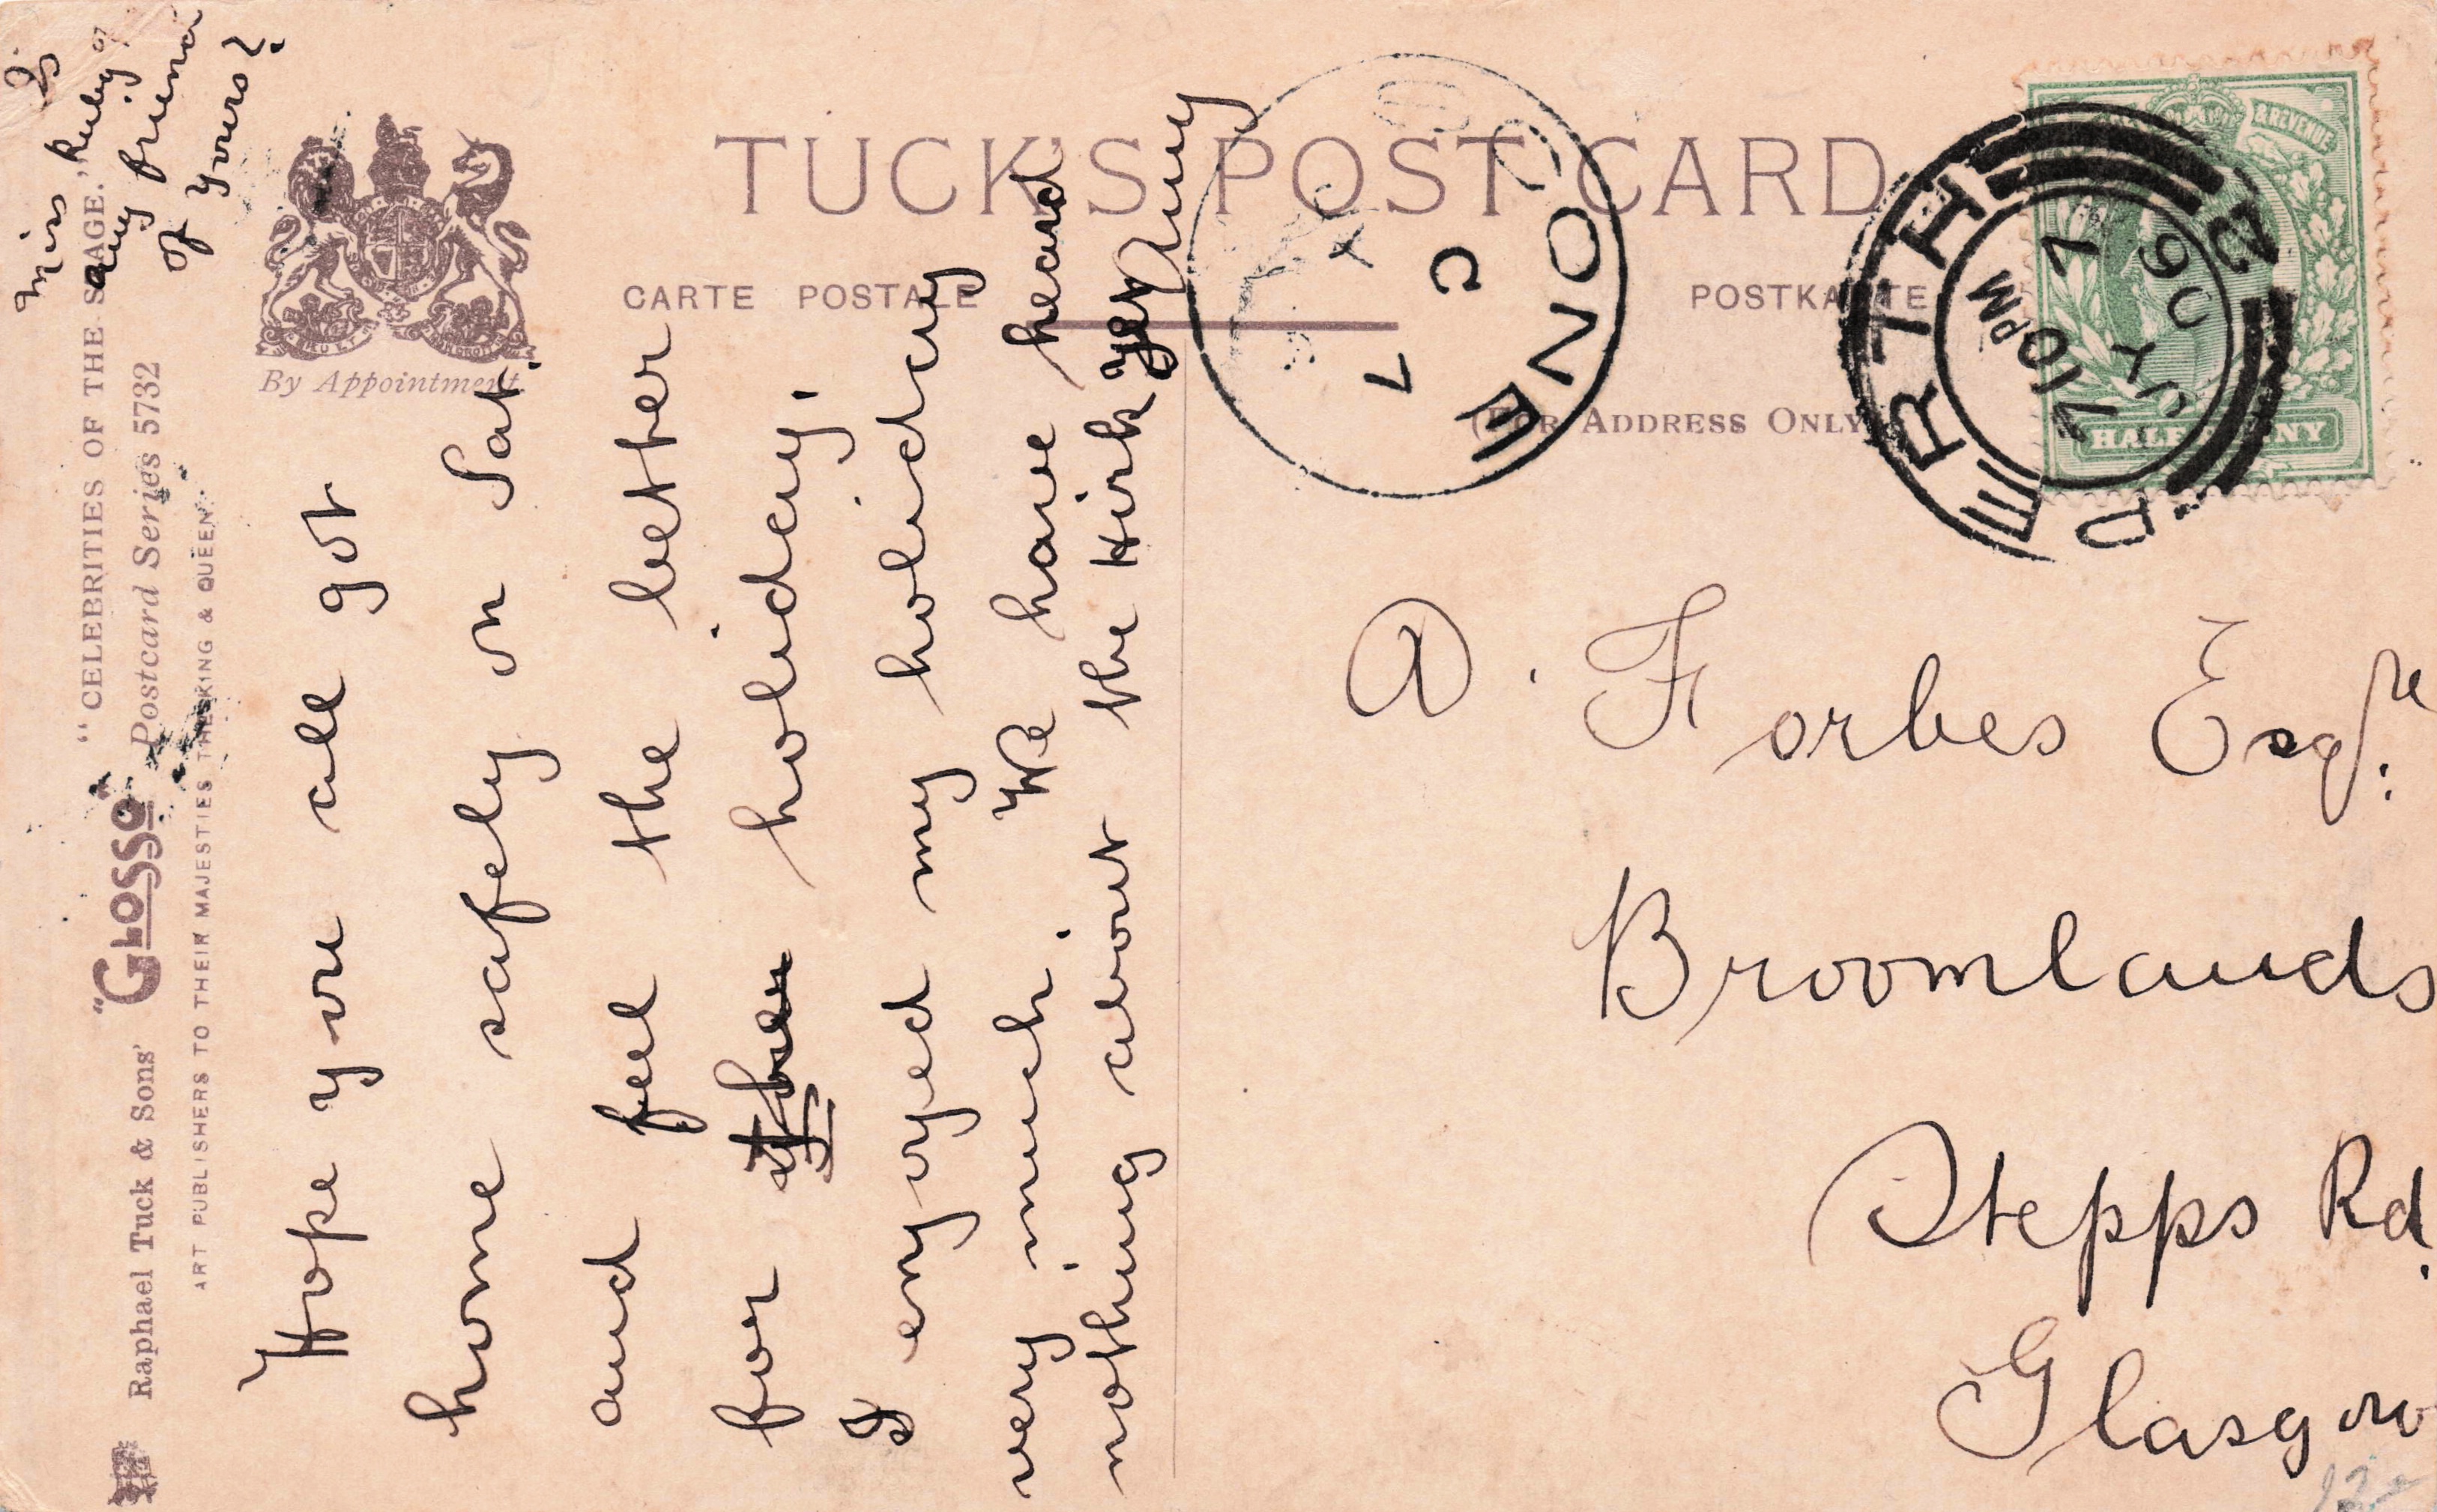 Is
Miss Ruby
any friend
of yours?
"CELEBRITIES OF THE STAGE."
Raphael Tuck & Sons' "GLOSSO" Postcard Series 5732
ART PUBLISHERS TO THEIR MAJESTIES THE KING & QUEEN.
By Appointment.
TUCK'S POST CARD
CARTE POSTALE
POSTKARTE
(FOR ADDRESS ONLY)
Hope you all got
home safely on Sat.
and feel the better
for holiday.
I enjoyed my holiday
very much. We have heard
nothing about the Kirk yet
PERTH
7 10 PM
JY 7
06
& REVENUE
HALFPENNY
A. Forbes Esqre.
Broomlands
Stepps Rd.
Glasgow
12